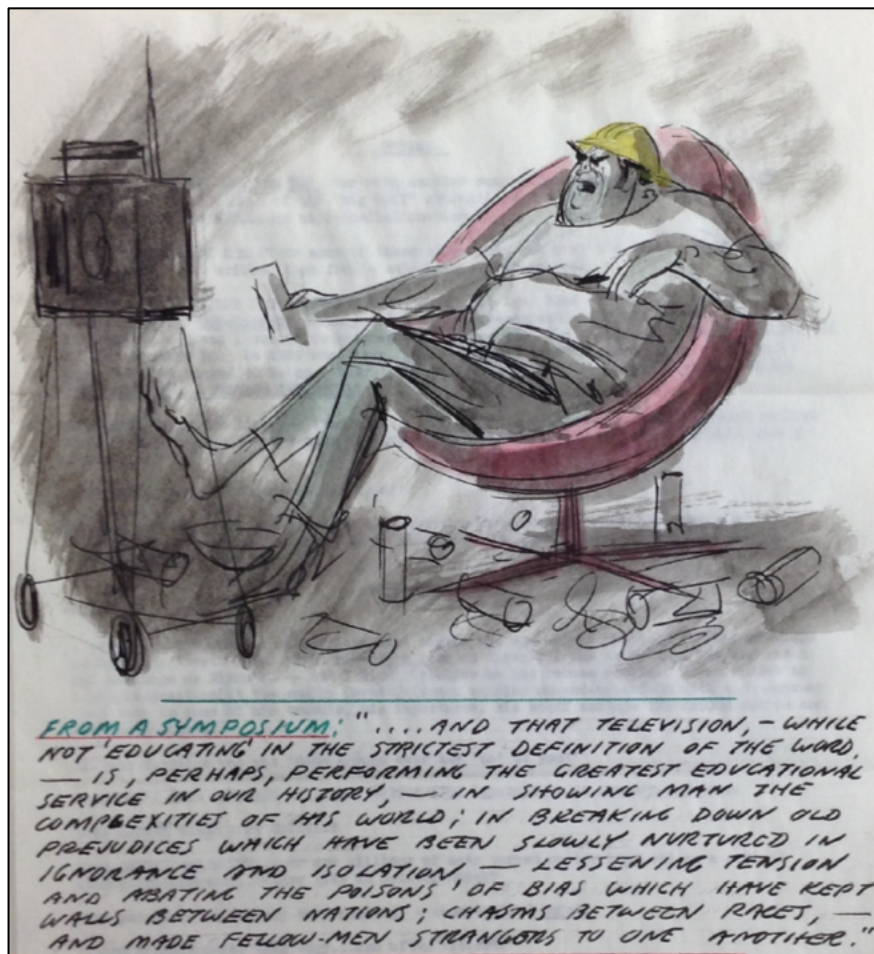 FROM A SYMPOSIUM: ".... AND THAT TELEVISION, – WHILE
NOT 'EDUCATING' IN THE STRICTEST DEFINITION OF THE WORD,
— IS, PERHAPS, PERFORMING THE GREATEST EDUCATIONAL
SERVICE IN OUR HISTORY, — IN SHOWING MAN THE
COMPLEXITIES OF HIS WORLD; IN BREAKING DOWN OLD
PREJUDICES WHICH HAVE BEEN SLOWLY NURTURED IN
IGNORANCE AND ISOLATION, — LESSENING TENSION
AND ABATING THE 'POISONS' OF BIAS WHICH HAVE KEPT
WALLS BETWEEN NATIONS; CHASMS BETWEEN RACES, —
AND MADE FELLOW-MEN STRANGERS TO ONE ANOTHER."